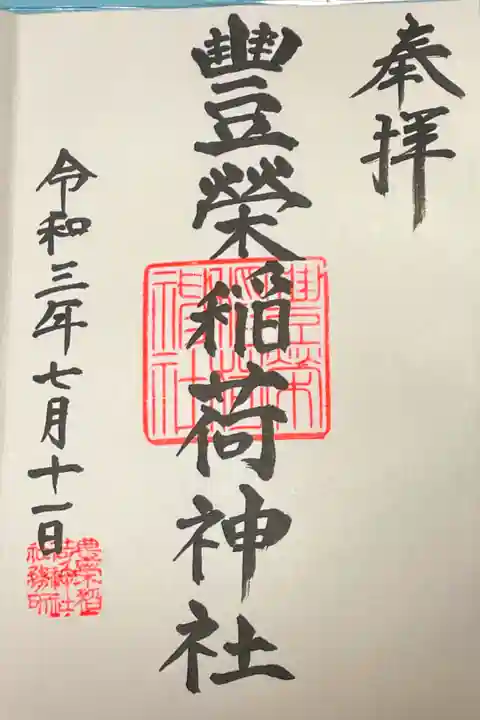 奉拝
豐榮稲荷神社
令和三年七月十一日
豊榮稲荷神社
豊榮稲荷神社社務所